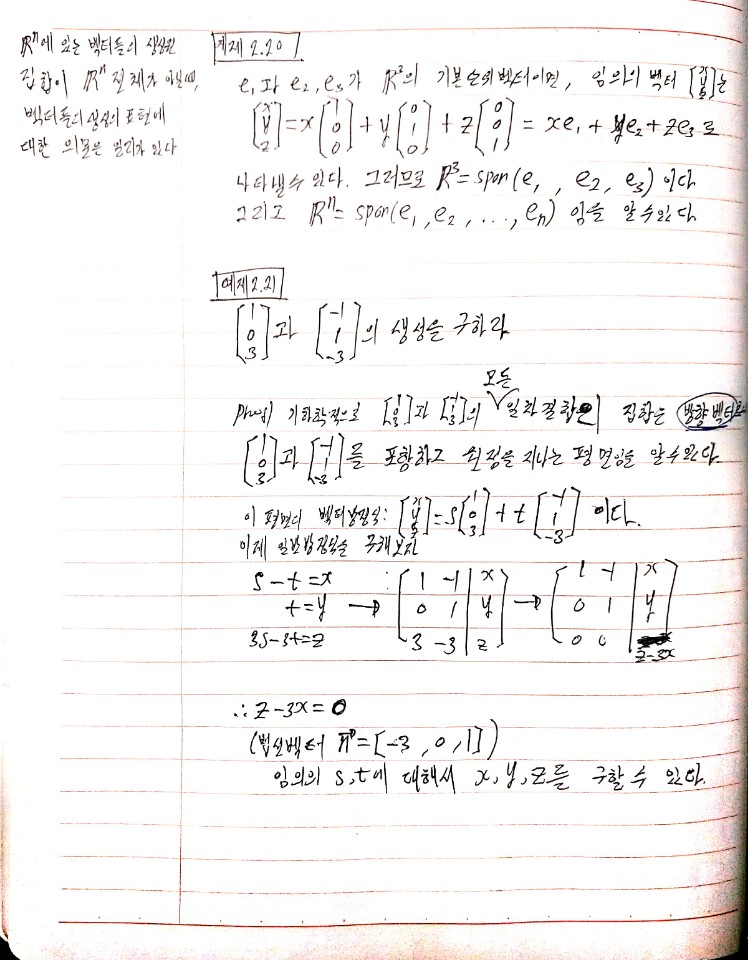 ℝⁿ에 있는 벡터들의 생성된
집합이 ℝⁿ 전체가 아닐 때,
벡터들의 생성의 표현에
대한 의문은 일리가 있다
예제 2.20
e₁과 e₂, e₃가 ℝ³의 기본단위벡터이면, 임의의 벡터 [x y z]는
[x y z] = x[1 0 0] + y[0 1 0] + z[0 0 1] = xe₁ + ye₂ + ze₃로
나타낼 수 있다. 그러므로 ℝ³ = span(e₁, e₂, e₃) 이다
그리고 ℝⁿ = span(e₁, e₂, ..., eₙ) 임을 알 수 있다
예제 2.21
[1 0 3]과 [-1 1 -3]의 생성을 구하라
모든
기하학적으로 [1 0 3]과 [-1 1 -3]의 ∨ 일차결합의 집합은 방향벡터
[1 0 3]과 [-1 1 -3]를 포함하고 원점을 지나는 평면임을 알 수 있다.
이 평면의 벡터방정식: [x y z] = s[1 0 3] + t[-1 1 -3] 이다.
이제 일반방정식을 구해보자
s - t = x
t = y → [1 -1 | x; 0 1 | y; 3 -3 | z] → [1 -1 | x; 0 1 | y; 0 0 | z-3x]
3s - 3t = z
∴ z - 3x = 0
(법선벡터 n = [-3, 0, 1])
임의의 s, t에 대해서 x, y, z를 구할 수 있다.